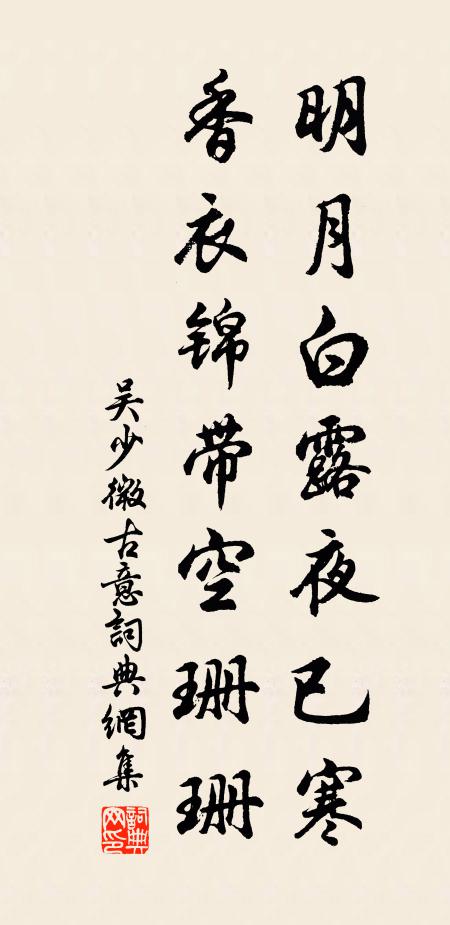 明月白露夜已寒
香衣锦带空珊珊
吴少微古意詞典網集
詞典网印